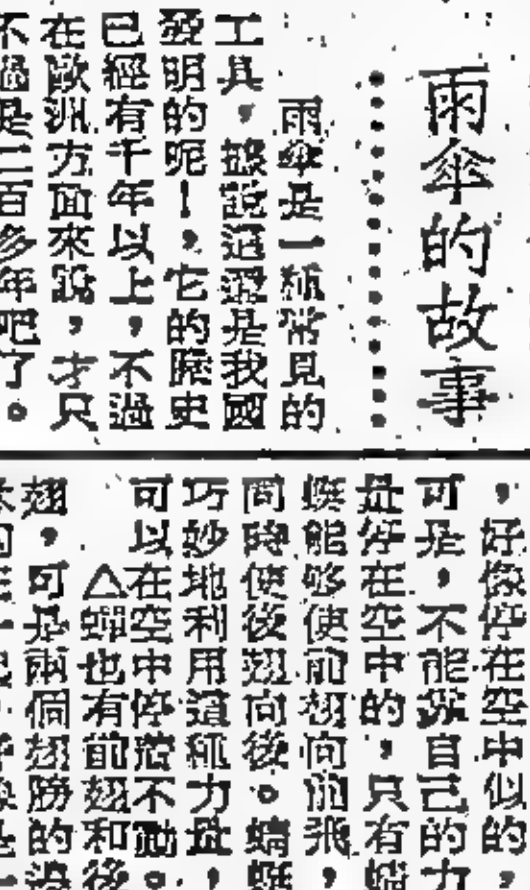 雨傘的故事
雨傘是一種常見的
工具,據說還是我國
發明的呢!,它的歷史
已經有千年以上,不過
在歐洲方面來說,才只
不過是二百多年吧了。
,好像停在空中似的,
可是,不能憑自己的力
是停在空中的,只有蜻
蜓能够使前翅向前飛,
同時使後翅向後。蜻蜓
巧妙地利用這種力量,
可以在空中停着不動。
△蟬也有前翅和後
翅,可是兩個翅膀的邊